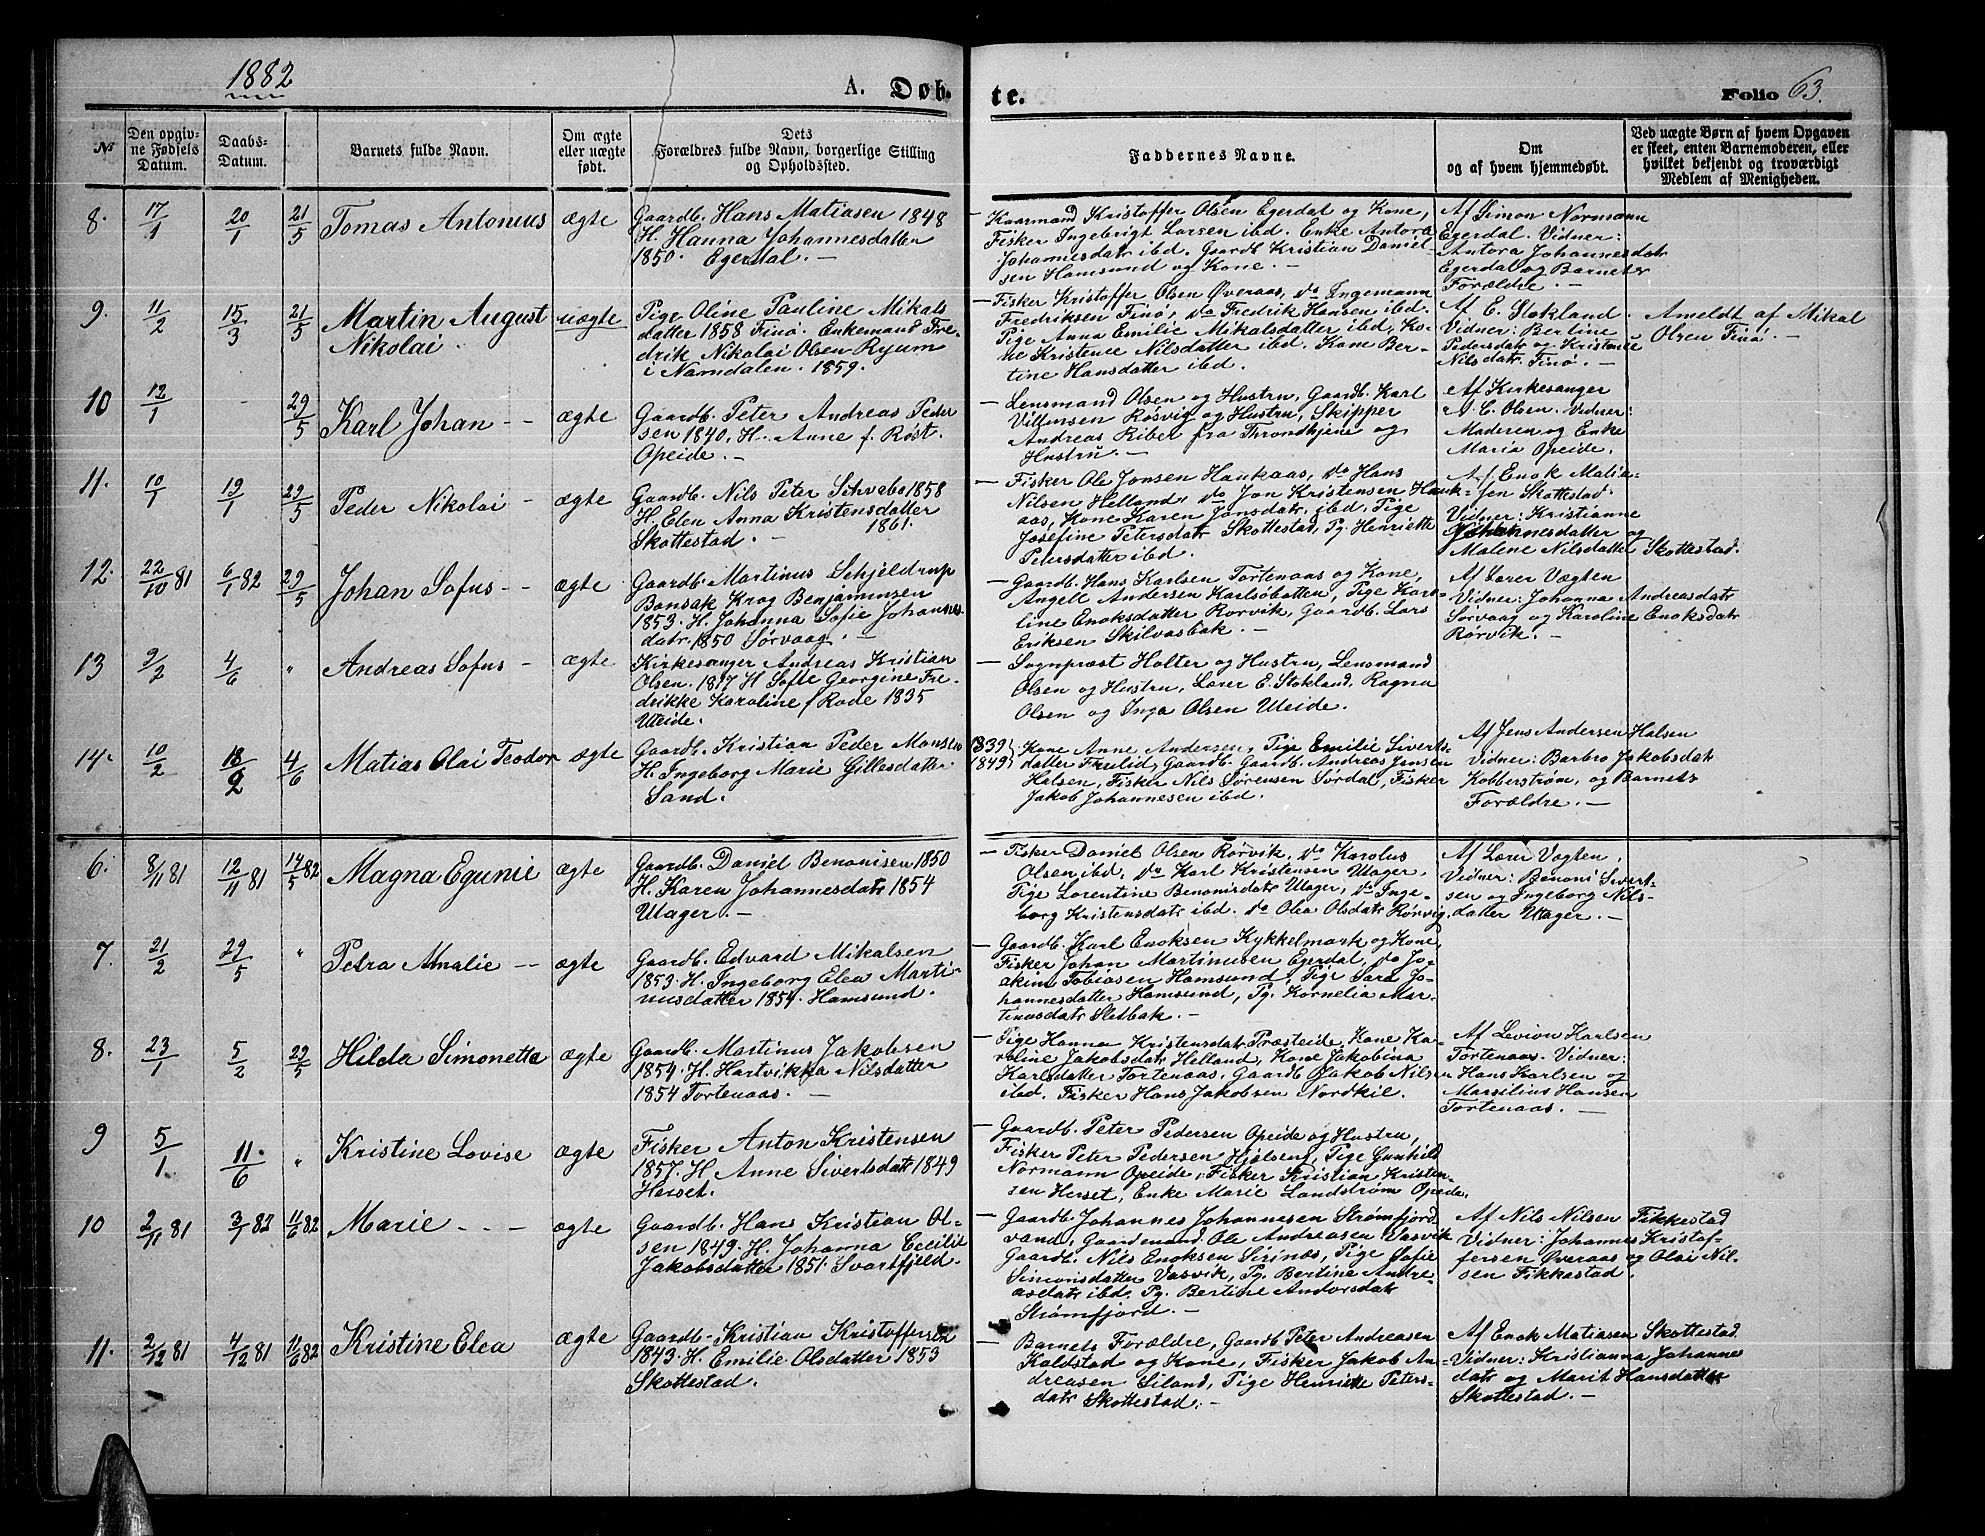 1882
A. Døb-
te.
Folio 63.
No
Den opgiv-
ne Fødsels
Datum.
Daabs-
Datum.
Barnets fulde Navn.
Om ægte
eller uægte
født.
Dets
Forældres fulde Navn, borgerlige Stilling
og Opholdssted.
Faddernes Navne.
Om
og af hvem hjemmedøbt.
Ved uægte Børn af hvem Opgaven
er skeet, enten Barnemoderen, eller
hvilket bekjendt og troværdigt
Medlem af Menigheden.
8. 17/1 20/1 21/5 Tomas Antonius ægte
Gaardb. Hans Matiasen 1848
H. Hanna Johannesdatter
1850. Egerdal. —
— Kaarmand Kristoffer Olsen Egerdal og Kone,
Fisker Ingebrigt Larsen ibd. Enke Antora
Johannesdatr ibd. Gaardb Kristian Daniel-
sen Hamsund og Kone. —
Af Simon Normann
Egerdal. Vidner:
Antora Johannesdatr
Egerdal og Barnets
Forældre. —
9. 11/2 15/3 21/5 Martin August
Nikolai.
uægte
Pige Oline Pauline Mikals
datter 1858 Finø. Enkemand Fre-
drik Nikolai Olsen Ryum
i Namdalen. 1859.
— Fisker Kristoffer Olsen Øveraas, do Ingemann
Fredriksen Finø, do Fredrik Hansen ibd.
Pige Anna Emilie Mikalsdatter ibd, Ko-
ne Kristence Nilsdatter ibd. Kone Ber-
tine Hansdatter ibd.
Af E. Stokland.
Vidner: Bertine
Pedersdatr og Kristence
Nilsdatr Finø. —
Ameldt af Mikal
Olsen Finø. —
10 12/1 - 29/5 Karl Johan - - ægte
Gaardb. Peter Andreas Peder
sen 1840, H. Anne f. Røst.
Opeide. —
— Lensmand Olsen og Hustru, Gaardb. Karl
Røsvig og Hustru, Skipper
Andreas Riber fra Throndhjem og
Hustru. —
Af Kirkesanger
A. C. Olsen. Vidner:
Moderen og Enke
Maria Opeide.
11. 10/1 19/1 29/5 Peder Nikolai - ægte
Gaardb. Nils Peter Schvabo 1858
H Elen Anna Kristensdatter
1861.
Skottestad. —
— Fisker Ole Jonsen Haukaas, do Hans
Nilsen Helland, do Jon Kristensen Hauk-
aas, Kone Karen Jonsdatr ibd. Pige
Josefine Petersdatr Skottestad, Pg. Henriette
Petersdatter ibd.
Af Enok Matia-
sen Skottestad.
Vidner: Kristianne
Johannesdatter og
Malene Nilsdatter Skottestad.
12. 22/10 81 6/1 82 29/5 Johan Sofus - - ægte
Gaardb. Martinus Schjeldrup
Bonsak Krog Benjaminsen
1853. H. Johanna Sofie Johannes-
datr. 1850 Sørvaag. —
— Gaardb. Hans Karlsen Tortenaas og Kone,
Angell Andersen Karlsøbotten, Pige Karo-
line Enoksdatter Rørvik, Gaardb. Lars
Eriksen Skilvasbak. —
Af Lærer Vogten
Vidner: Johanna Andreasdatr
Sørvaag og Karoline Enoksdatr
Rørvik. —
13 9/2 4/6 " Andreas Sofus - ægte
Kirkesanger Andreas Kristian
Olsen. 1817 H Sofie Georgine Fre-
drikke Karoline f Rode 1835
Uteide.
— Sognpræst Holter og Hustru, Lensmand
Olsen og Hustru, Lærer E. Stokland, Ragna
Olsen og Inga Olsen Uteide.
14. 10/2 18/2 4/6 Matias Olai Teodor ægte
Gaardb. Kristian Peder Monsen 1839
H. Ingeborg Marie Gillesdatter 1849
Sand.
Kone Anne Andersen, Pige Emilie Siverts-
datter Freilid, Gaardb. Gaardb. Andreas Jensen
Halsen, Fisker Nils Sørensen Sørdal, Fisker
Jakob Johannesen ibd.
Af Jens Andersen Halsen
Vidner: Barbro Jakobsdatr
Kobberstrøm, og Barnets
Forældre. —
6. 8/11 81 12/11 81 14/5 82 Magna Egunie ægte
Gaardb. Daniel Benonisen 1850
H. Karen Johannesdatr 1854
Utager. —
— Fisker Daniel Olsen Rørvik, do Karolus
Olsen ibd, do Karl Kristensen Utager.
Pige Lorentine Benonisdatr Utager, do Inge-
borg Kristensdatr ibd. do Olea Olsdatr Rørvig.
Af Lærer Vogten.
Vidner: Benoni Sivert-
sen og Ingeborg Nils-
datter Utager. —
7. 21/2 29/5 " Petra Amalie - - ægte
Gaardb. Edvard Mikalsen
1853. H. Ingeborg Elea Marti-
nusdatter 1854. Hamsund.
— Gaardb. Karl Enoksen Kykkelmark og Kone,
Fisker Johan Martinusen Egerdal, do Jo-
akim Tobiasen Hamsund, Pige Sara Jo-
hannesdatter Hamsund, Pg. Kornelia Mar-
tinusdatr Sletbak. —
8. 23/1 5/2 29/5 Hilda Simonetta ægte
Gaardb. Martinus Jakobsen
1854. H. Hartvikka Nilsdatter
1854 Tortenaas. —
— Pige Hanna Kristensdatr Præsteide, Kone Ka-
roline Jakobsdatr Helland, Kone Jakobina
Karlsdatter Tortenaas, Gaardb Jakob Nilsen
ibd. Fisker Hans Jakobsen Nordkil.
Af Levion Karlsen
Tortenaas. Vidner:
Hans Karlsen og
Marsilius Hansen
Tortenaas. —
9 5/1 11/6 " Kristine Lovise ægte
Fisker Anton Kristensen
1857. H Anne Sivertsdatr 1849
Herset.
— Gaardb. Peter Pedersen Opeide og Hustru,
Fisker Peter Pedersen Hjelseng, Pige Gunhild
Normann Opeide, Fisker Kristian Kristen-
sen Herset, Enke Marie Landstrøm Opeide.
10 2/11 81 3/1 82 11/6 82 Marie - - - ægte
Gaardb. Hans Kristian Ol-
sen 1849. H. Johanna Cecilie
Jakobsdatter 1851. Svartfjeld.
— Gaardb. Johannes Johannesen Strømfjord
vand, Gaardmand Ole Andreasen Vasvik
Gaardb. Nils Enoksen Sirinæs, Pige Sofie
Simonsdatter Vasvik, Pg. Bertine Andre-
asdatr ibd. Pg. Bertine Andorsdatr
Strømfjord. —
Af Nils Nilsen Fikkestad
Vidner: Johannes Kristof-
fersen Øveraas og Olai Nil-
sen Fikkestad.
11. 2/12 81 4/12 81 11/6 82 Kristine Elea ægte
Gaardb. Kristian Kristoffersen
1843. H. Emilie Olsdatter 1853
Skottestad.
— Barnets Forældre, Gaardb Peter Andreasen
Kaldstad og Kone, Fisker Jakob An-
dreasen Siland, Pige Henriette Peters-
datr Skottestad. —
Af Enok Matiasen Skottestad
Vidner: Kristianna Johannes
datr og Marit Hansdatter
Skottestad. —